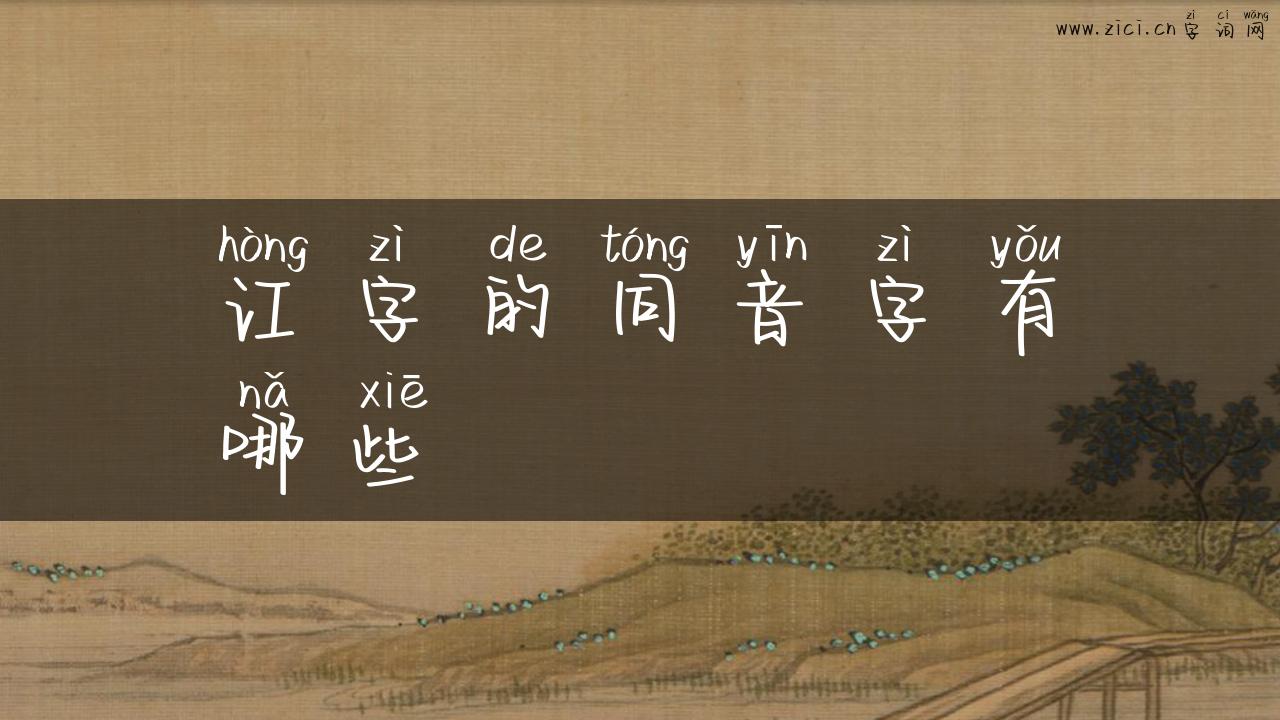 zì cí wǎng
www.zici.cn字词网
hòng zì de tóng yīn zì yǒu
讧字的同音字有
nǎ xiē
哪些